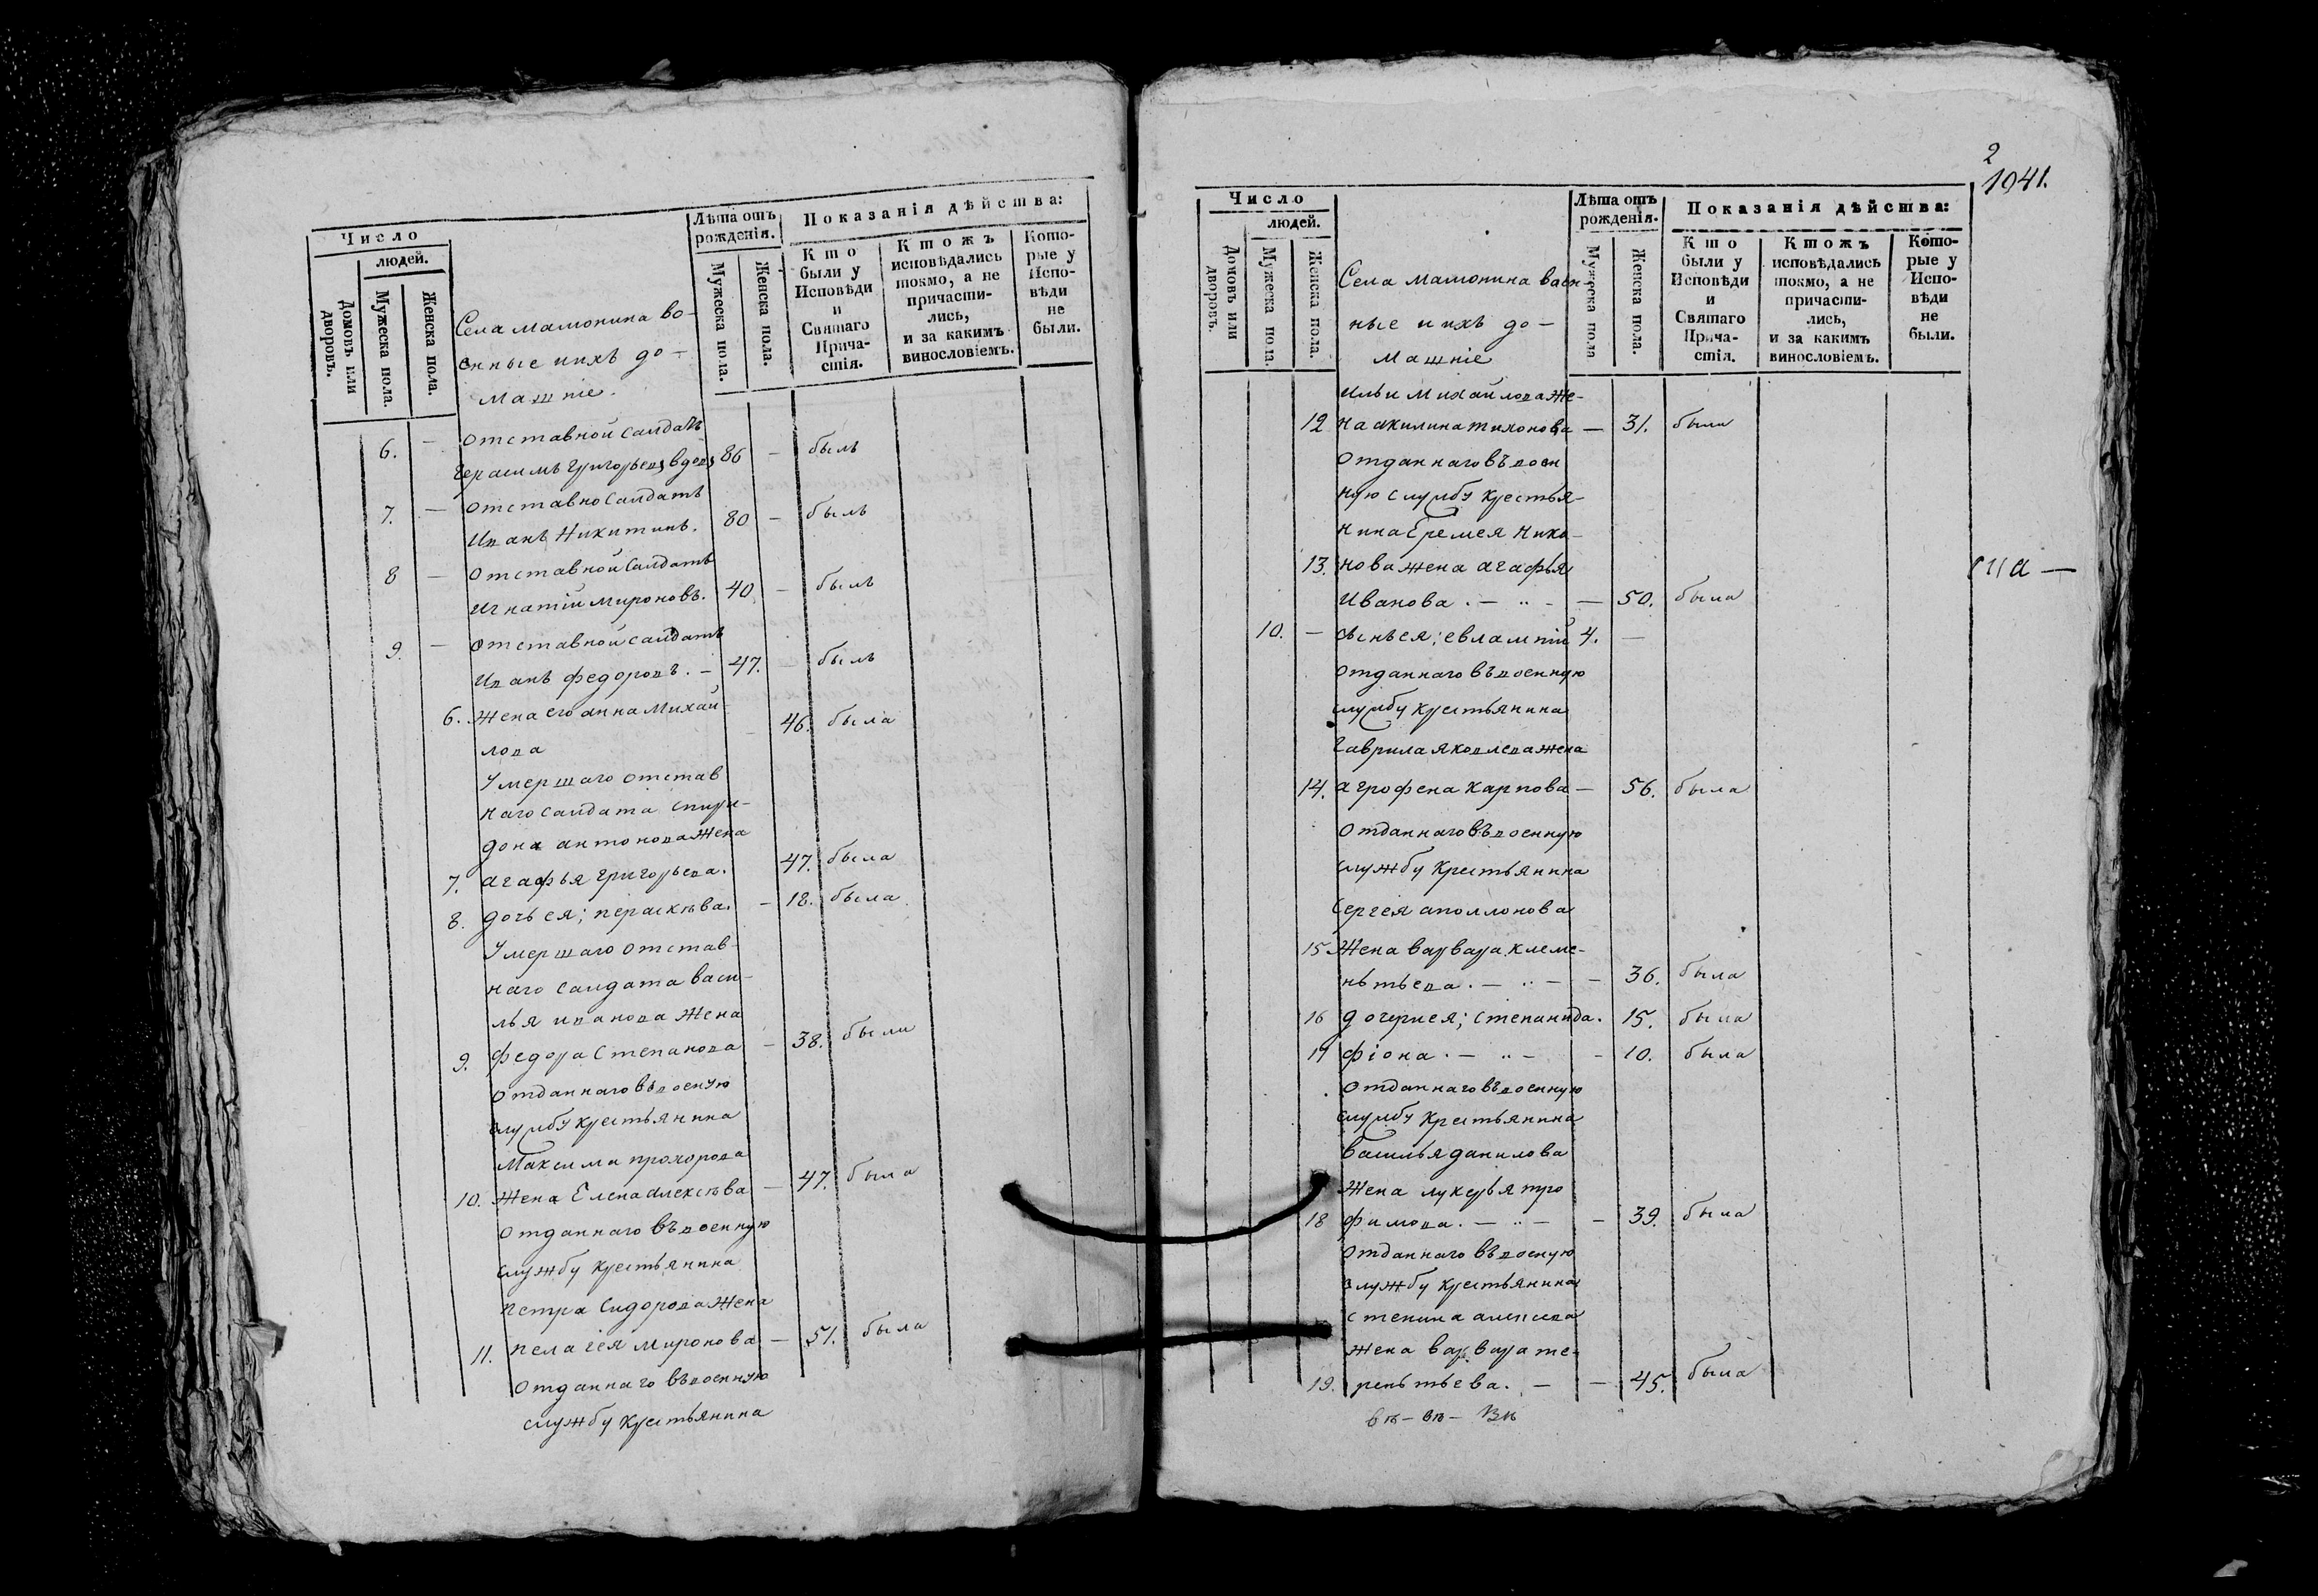 Число
людей.
Домовъ или дворовъ.
Мужеска пола.
Женска пола.
Села мамонина во-
енные ихъ до-
машніе.
Лѣта отъ рожденія.
Мужеска пола.
Женска пола.
Показанія дѣйства:
Кто были у Исповѣди и Святаго Прича-стія.
Ктожъ исповѣдались токмо, а не причасти-лись, и за какимъ винословіемъ.
Кото-рые у Испо-вѣди не были.
6. — отставной салдатъ
Герасимъ григорьевъ вдовъ 86 — былъ
7. — отставно салдатъ
Иванъ Никитинъ. 80 — былъ
8 — отставной салдатъ
Игнатій мироновъ. 40 — былъ
9. — отставной салдатъ
Иванъ федоровъ. — 47. — былъ
6. жена его анна михай-
лова 46. была
Умершаго отстав
наго салдата спири-
дона антонова жена
7. агафья григорьева. 47. была
8. дочь ея; параскѣва. — 18. была
Умершаго отстав-
наго салдата васи-
лья иванова жена
9. федора степанова — 38. была
отданнаго въ военую
службу крестьянина
Максима прохорова
10. жена Елена алексѣва — 47. была
отданнаго въ военную
службу крестьянина
петра сидорова жена
11. пелагея миронова — 51. была
отданнаго въ военную
службу крестьянина
2
1941.
Число
людей.
Домовъ или дворовъ.
Мужеска пола.
Женска пола.
Села мамонина воен-
ные ихъ до-
машніе
Лѣта отъ рожденія.
Мужеска пола
Женска пола.
Показанія дѣйства:
Кто были у Исповѣди и Святаго Прича-стія.
Ктожъ исповѣдались токмо, а не причасти-лись, и за какимъ винословіемъ.
Кото-рые у Испо-вѣди не были.
ильи михайлова же-
12 на акилина тихонова — 31. была
отданнаго въ воен
ную службу крестья-
нина Еремея Нико-
13. нова жена агафья
Иванова. — 50. была
10. — сынъ ея; евлампій 4. —
отданнаго въ военную
службу крестьянина
гаврила яковлева жена
14. агрофена карпова — 56. была
отданнаго въ военную
службу крестьянина
сергея аполлонова
15 жена варвара клеме-
нтьева. — 36. была
16 дочери ея; степанида. 15. была
17 фіона. — 10. была
отданнаго въ военную
службу крестьянина
василья данилова
жена лукерья тро
18 фимова. — 39. была
отданнаго въ военую
службу крестьянина
жена варвара те-
19. рентьева. — 45. была